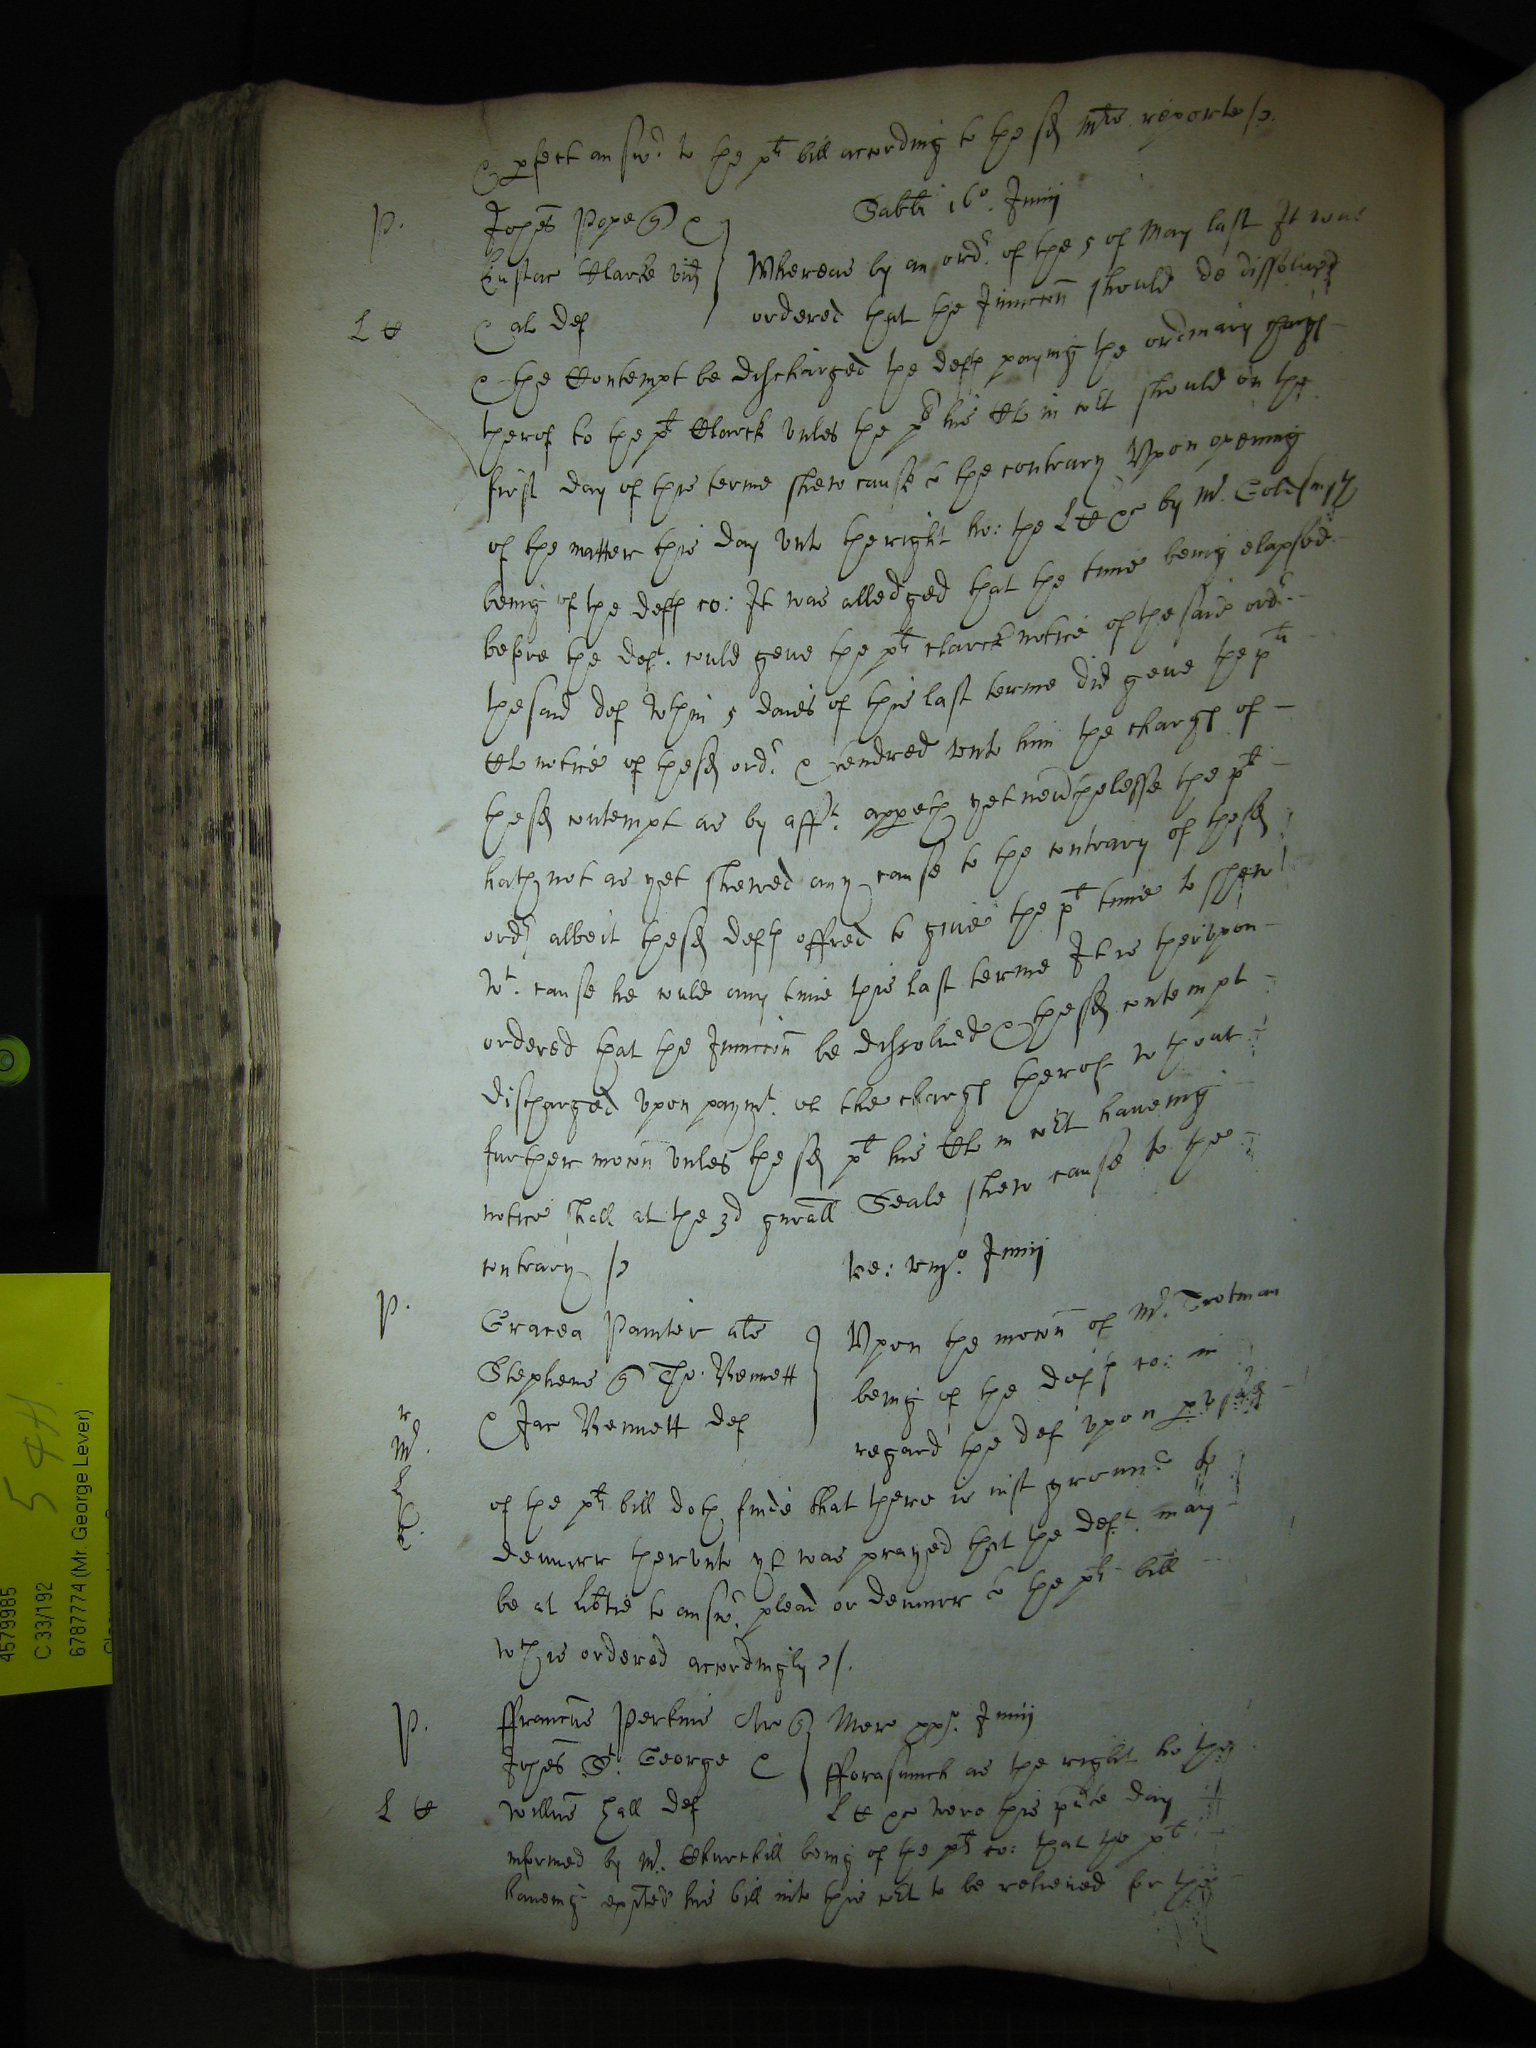 & pfect answ to the plt bill according to the sd Mrs reporte /.
Sabti 16o. Junij
P.
Johes Pope &
Eustac Clarke vid
L C
& al def
Whereas by an ordr. of the 5 of May last It was
ordered that the Iniunccon should be dissolued
& the Contempt be discharged the defts paying the ordinary chargs
therof to the plt Clarck vnles the plt his Cl in cort should on the
first day of this terme shew cause to the contrary Vpon opening
of the matter this day vnto the right ho: the L C &c by Mr. Goldsmyth
being of the defts co: It was alledged that the time being elapsed
before the deft. could geue the plt Clarck notice of the said ordr.
the said def wthin 5 daies of this last terme did geue the plts
Cl notice of the sd ordr. & tendred vnto him the chargs of
the sd contempt as by afft. appeth yet neuthelesse the plt
hath not as yet shewed any cause to the contrary of the sd
ordr albeit the sd defts offred to giue the plt time to shew
wt. cause he could any time this last terme It is thervpon
ordered that the Iniunccon be dissolued & the sd contempt
discharged vpon paymt. of the chargs therof wthout
further mocon vnles the sd plt his Cl in cort haueing
notice shall at the 3d gnrall Seale shew cause to the
contrary /.
P.
Gracea Painter als
Stephens & Tho. Bennett
& Jac Bennett def
Vpon the mocon of Mr. Trotman
being of the defts co: in
regard the def vpon pusall
r
Mr.
of the plts bill doth finde that there is iust ground to
demurr thervnto yt was prayed that the deft. may
be at libtie to answ. plead or demurr to the plts bill
wch is ordered accordingly /.
P.
ffrancus Perkins &
Johes St. George &
L C
Willus Hall def
Junij
fforasmuch as the right ho the
L C &c were this pnte day
informed by Mr. Churchill being of the plts co: that the plt
haueing exhited his bill into this cort to be releiued for the
4579985
C 33/192
6787774 (Mr. George Lever)